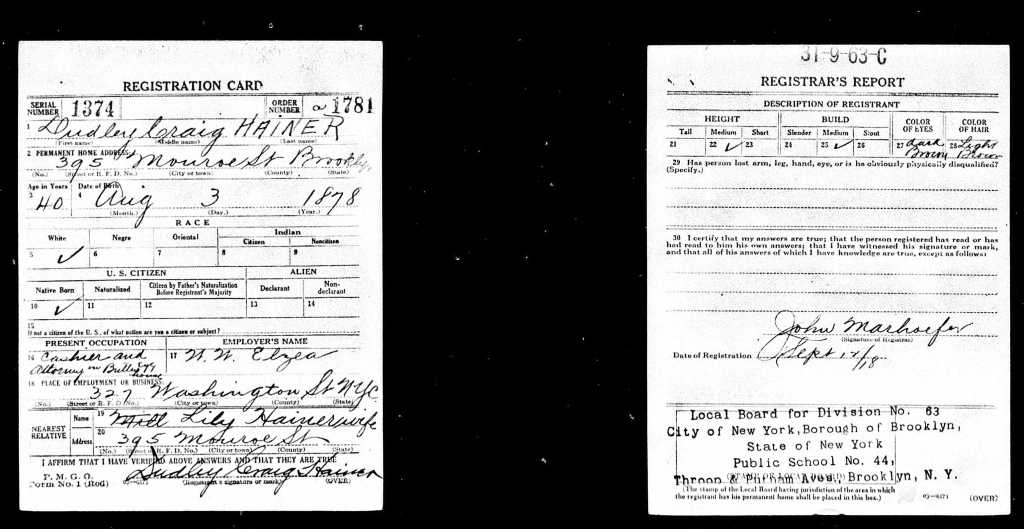 REGISTRATION CARD
SERIAL NUMBER 1374 ORDER NUMBER a 1781
1 Dudley Craig HAINER
(First name) (Middle name) (Last name)
2 PERMANENT HOME ADDRESS:
395 Monroe St Brooklyn
(No.) (Street or R. F. D. No.) (City or town) (County) (State)
Age in Years Date of Birth
3 40 4 Aug 3 1878
(Month.) (Day.) (Year.)
RACE
White Negro Oriental Indian
Citizen Noncitizen
5 ✓ 6 7 8 9
U. S. CITIZEN ALIEN
Native Born Naturalized Citizen by Father's Naturalization Before Registrant's Majority Declarant Non-declarant
10 ✓ 11 12 13 14
15
If not a citizen of the U. S., of what nation are you a citizen or subject?
PRESENT OCCUPATION EMPLOYER'S NAME
16 Cashier and
Attorney in
17 W. W. Elzea
18 PLACE OF EMPLOYMENT OR BUSINESS:
327 Washington St NYC
(No.) (Street or R. F. D. No.) (City or town) (County) (State)
NEAREST RELATIVE
Name 19 Lily Hainer wife
Address 20 395 Monroe St
(No.) (Street or R. F. D. No.) (City or town) (County) (State)
I AFFIRM THAT I HAVE VERIFIED ABOVE ANSWERS AND THAT THEY ARE TRUE
P. M. G. O.
Form No. 1 (Red) Dudley Craig Hainer
(Registrant's signature or mark) (OVER)
31-9-63-C
REGISTRAR'S REPORT
DESCRIPTION OF REGISTRANT
HEIGHT BUILD COLOR OF EYES COLOR OF HAIR
Tall Medium Short Slender Medium Stout
21 22 ✓ 23 24 25 ✓ 26 27 dark Brown 28 Light Brown
29 Has person lost arm, leg, hand, eye, or is he obviously physically disqualified?
(Specify.)
30 I certify that my answers are true; that the person registered has read or has
had read to him his own answers; that I have witnessed his signature or mark,
and that all of his answers of which I have knowledge are true, except as follows:
John Marhoefer
(Signature of Registrar)
Date of Registration Sept 12/18
Local Board for Division No. 63
City of New York, Borough of Brooklyn,
State of New York
Public School No. 44,
Throop & Putnam Aves., Brooklyn, N. Y.
(The stamp of the Local Board having jurisdiction of the area in which
the registrant has his permanent home shall be placed in this box.)
03-6171 (OVER)